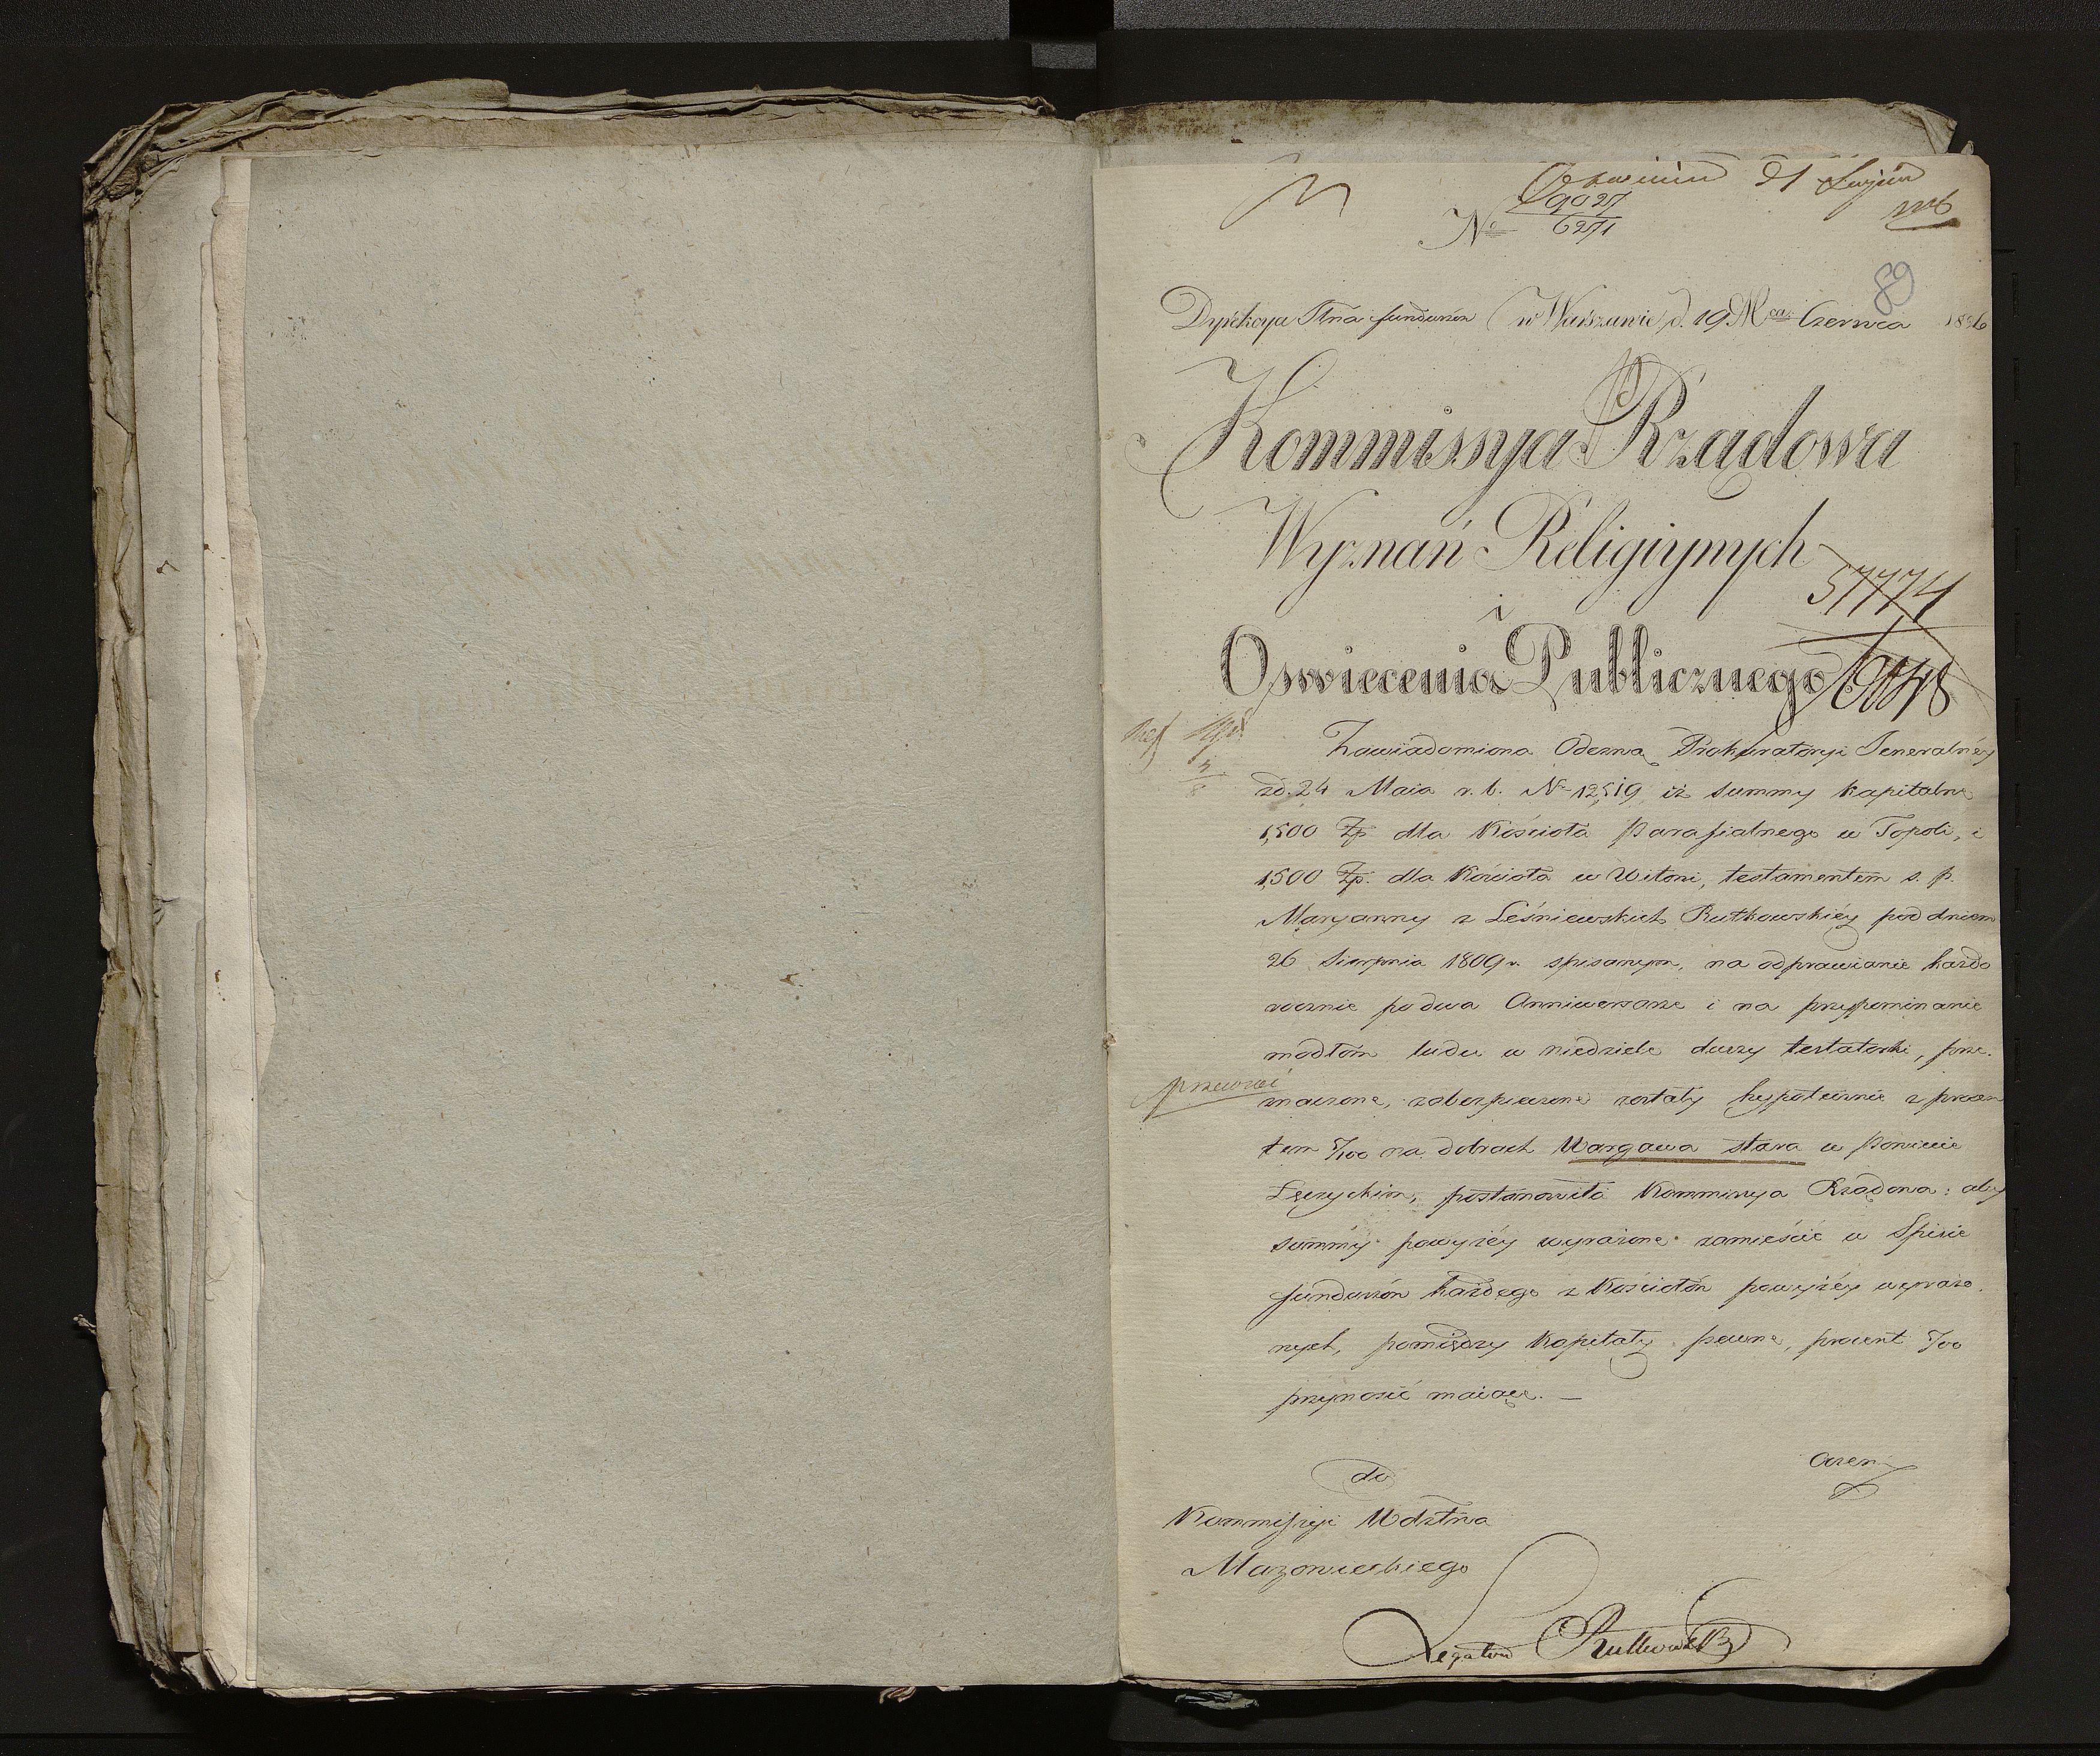 9027
No 6271
89
w Warszawie, d. 19 Mca Czerwca
Kommissya Rządowa
Wyznań Religiynych
57774
i
Oswiecenia Publicznego
Zawiadomiona Odezwą Prokuratoryi Jeneralnéy
zd. 24 Maia r. b. No 12519, iż summy kapitalne
1,500 Zp dla Kościoła Parafialnego w Topoli, i
1,500 Zp. dla Kościoła w Witoni, testamentem s. p.
Maryanny z Leśniewskich Rutkowskiéy pod dniem
26 Sierpnia 1809 r. spisanym, na odprawianie każdo
rocznie po dwa Anniwersarze i na przypominanie
modłom ludu w niedziele duszy testatorki, prze-
znaczone, zabezpieczone zostały hypotecznie z procen
tem 5/100 na dobrach Wargawa stara w Powiecie
Łęczyckim, postanowiła Kommissya Rządowa: aby
summy powyżéy wyrażone zamieścić w Spisie
funduszów każdego z Kościołów powyżéy wyrażo-
nych, pomiędzy Kapitały pewne, procent 5/100
przynosić maiące. —
do
Kommissyi Wdztwa
Mazowieckiego
Legatów Rutkowski